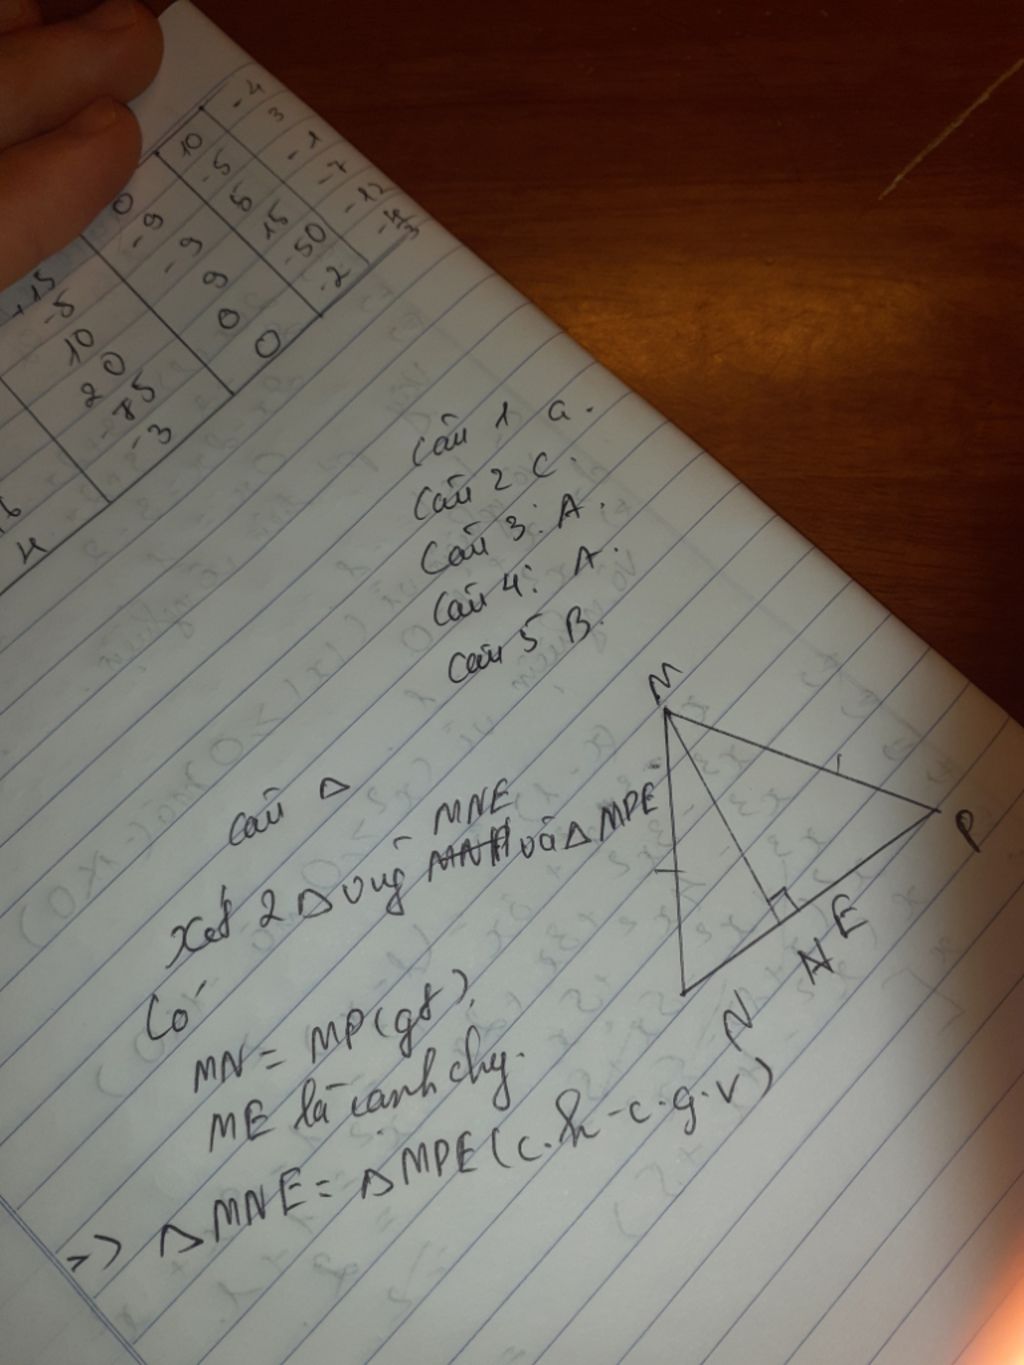 -4
10 3
0 -5 -1
+15 -9 5 -7
-5 -9 15 -12
10 9 -50
20 0 -2
-85 0
-3
Câu 1 a.
Câu 2 C.
Câu 3: A.
Câu 4: A.
Câu 5 B.
M
P
E
N
câu Δ
MNE
Xét 2 Δ vug và Δ MPE
Có
MN = MP (gt).
ME là cạnh chg.
=> Δ MNE = Δ MPE (c.h - c.g.v)